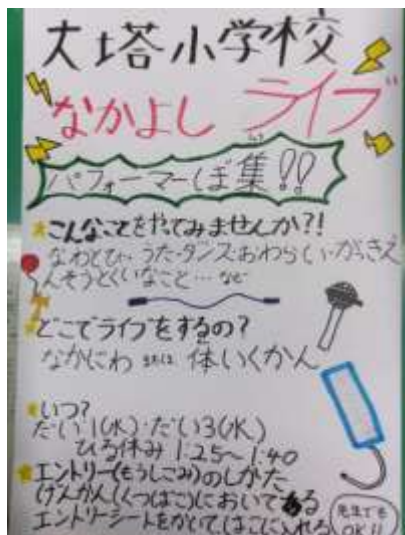 大塔小学校
なかよし ライブ
パフォーマーぼ集!!
こんなことをやってみませんか?!
なわとび・うた・ダンス・おわらい・がっきえ
んそうとくいなこと…など
どこでライブをするの?
なかにわ または 体いくかん
いつ?
だい1(水)・だい3(水)
ひる休み 1:25~1:40
エントリー(もうしこみ)のしかた
げんかん(くつばこ)においてある
エントリーシートをかいて、はこに入れる
先生でも
OK!!